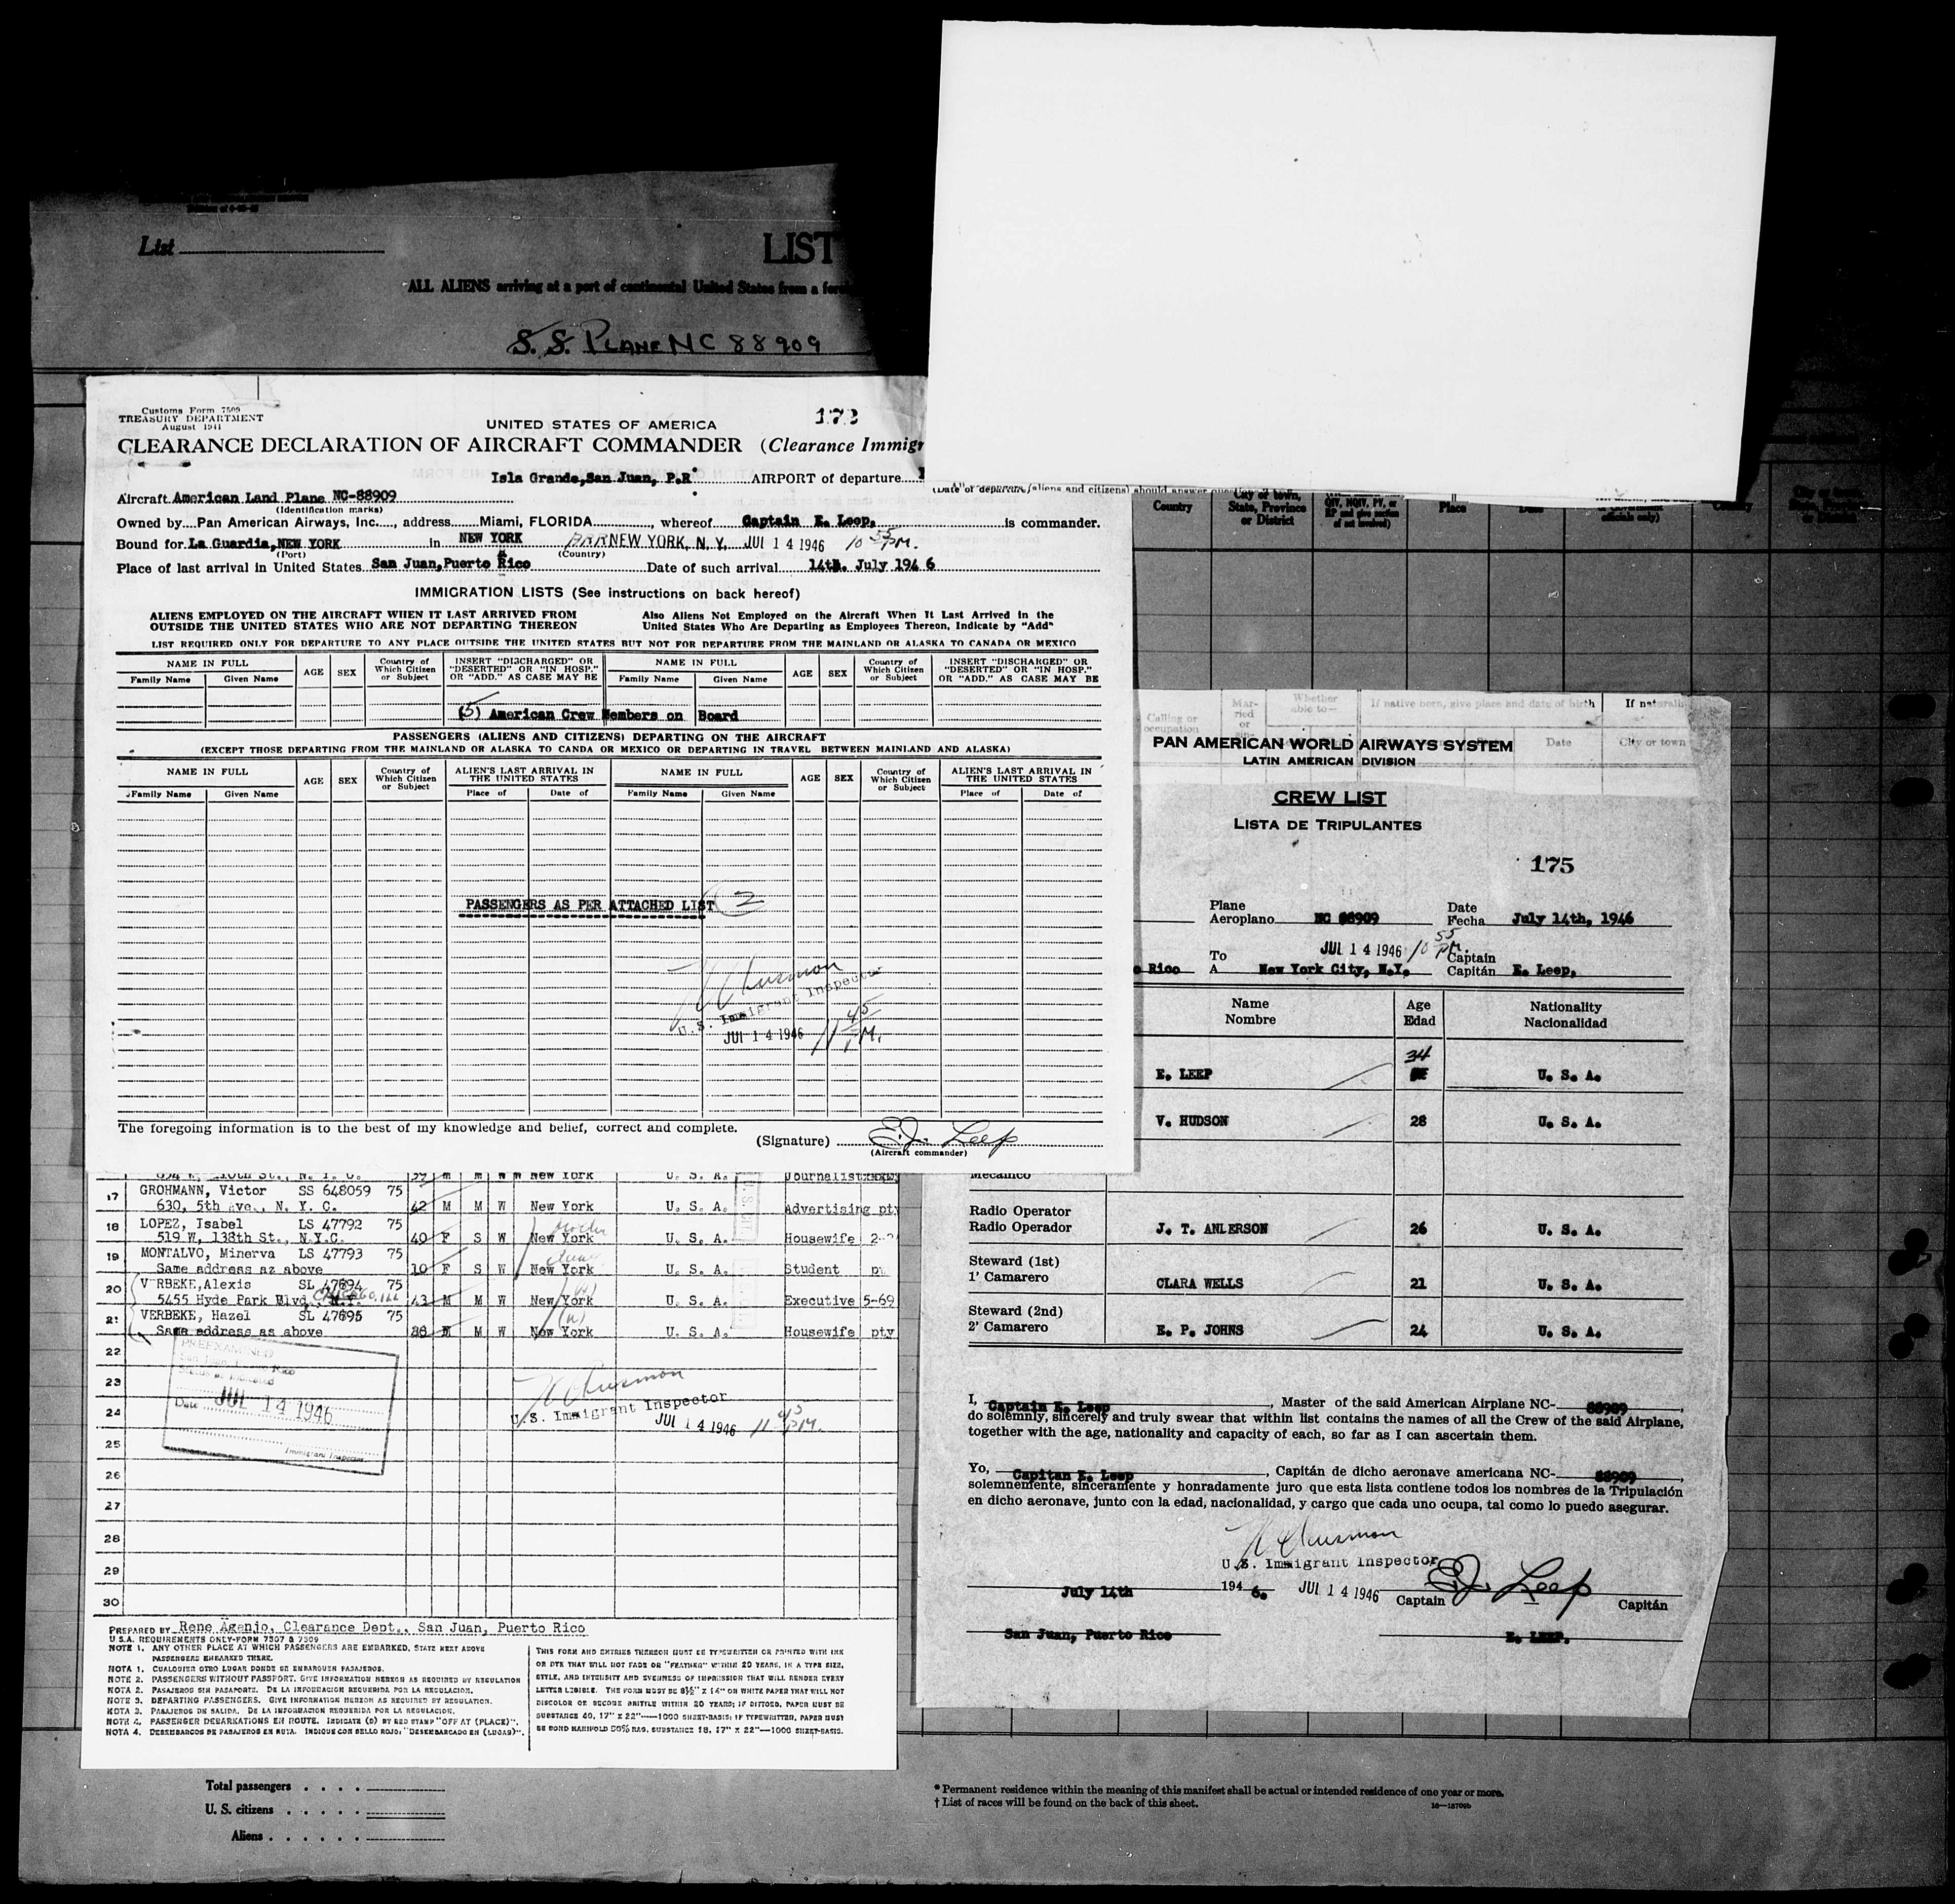 List
LIST
ALL ALIENS arriving at a port of continental United States from a
S. S. PLANE NC 88909
Customs Form 7509
TREASURY DEPARTMENT
August 1941
172
UNITED STATES OF AMERICA
CLEARANCE DECLARATION OF AIRCRAFT COMMANDER (Clearance Immigr
Isla Grande,San Juan, P.R. AIRPORT of departure
Aircraft American Land Plane NC-88909
(Identification marks)
(Date of departure
Owned by Pan American Airways, Inc., address Miami, FLORIDA, whereof Captain E. Leep, is commander.
Bound for La Guardia,NEW YORK in NEW YORK ARR NEW YORK, N. Y. JUL 14 1946 10 55 PM.
(Port) (Country)
Place of last arrival in United States San Juan,Puerto Rico Date of such arrival 14th. July 1946
IMMIGRATION LISTS (See instructions on back hereof)
ALIENS EMPLOYED ON THE AIRCRAFT WHEN IT LAST ARRIVED FROM
OUTSIDE THE UNITED STATES WHO ARE NOT DEPARTING THEREON
Also Aliens Not Employed on the Aircraft When It Last Arrived in the
United States Who Are Departing as Employees Thereon, Indicate by "Add"
LIST REQUIRED ONLY FOR DEPARTURE TO ANY PLACE OUTSIDE THE UNITED STATES BUT NOT FOR DEPARTURE FROM THE MAINLAND OR ALASKA TO CANADA OR MEXICO
NAME IN FULL AGE SEX Country of Which Citizen or Subject INSERT "DISCHARGED" OR "DESERTED" OR "IN HOSP." OR "ADD." AS CASE MAY BE NAME IN FULL AGE SEX Country of Which Citizen or Subject INSERT "DISCHARGED" OR "DESERTED" OR "IN HOSP." OR "ADD." AS CASE MAY BE
Family Name Given Name Family Name Given Name
(5) American Crew Members on Board
PASSENGERS (ALIENS AND CITIZENS) DEPARTING ON THE AIRCRAFT
(EXCEPT THOSE DEPARTING FROM THE MAINLAND OR ALASKA TO CANDA OR MEXICO OR DEPARTING IN TRAVEL BETWEEN MAINLAND AND ALASKA)
NAME IN FULL AGE SEX Country of Which Citizen or Subject ALIEN'S LAST ARRIVAL IN THE UNITED STATES NAME IN FULL AGE SEX Country of Which Citizen or Subject ALIEN'S LAST ARRIVAL IN THE UNITED STATES
Family Name Given Name Place of Date of Family Name Given Name Place of Date of
PASSENGERS AS PER ATTACHED LIST 2
U.S. Immigrant Inspector
JUL 14 1946 11 45 PM.
The foregoing information is to the best of my knowledge and belief, correct and complete.
(Signature) E.J. Leep
(Aircraft commander)
New York U. S. A. Journalist
17 GROHMANN, Victor SS 648059 75
630, 5th ave., N. Y. C. 42 M M W New York U. S. A. Advertising pty
18 LOPEZ, Isabel LS 47792 75
519 W, 138th St., N.Y.C. 40 F S W New York U. S. A. Housewife
19 MONTALVO, Minerva LS 47793 75
Same address az above 10 F S W New York U. S. A. Student
20 VERBEKE,Alexis SL 47694 75
5455 Hyde Park Blvd, N.Y. Chicago, Ill 43 M M W New York U. S. A. Executive 5-69
21 VERBEKE, Hazel SL 47695 75
Same address as above M W New York U. S. A. Housewife pty
22
23
24
25
26
27
28
29
30
PREEXAMINED
Date JUL 14 1946
Immigrant Inspector
U.S. Immigrant Inspector
JUL 14 1946 11 45 PM.
PREPARED BY Rene Agenjo, Clearance Dept., San Juan, Puerto Rico
U.S.A. REQUIREMENTS ONLY-FORM 7507 & 7509
NOTE 1. ANY OTHER PLACE AT WHICH PASSENGERS ARE EMBARKED, STATE NEXT ABOVE
PASSENGERS EMBARKED THERE.
NOTA 1. CUALQUIER OTRO LUGAR DONDE SE EMBARQUEN PASAJEROS.
NOTE 2. PASSENGERS WITHOUT PASSPORT. GIVE INFORMATION HEREON AS REQUIRED BY REGULATION
NOTA 2. PASAJEROS SIN PASAPORTE. DE LA INFORMACION REQUERIDA POR LA REGULACION.
NOTE 3. DEPARTING PASSENGERS. GIVE INFORMATION HEREON AS REQUIRED BY REGULATION.
NOTA 3. PASAJEROS DE SALIDA. DE LA INFORMACION REQUERIDA POR LA REGULACION.
NOTE 4. PASSENGER DEBARKATIONS EN ROUTE. INDICATE (O) BY RED STAMP "OFF AT (PLACE)".
NOTA 4. DESEMBARCOS DE PASAJEROS EN RUTA. INDIQUE CON SELLO ROJO: "DESEMBARCADO EN (LUGAR)".
THIS FORM AND ENTRIES THEREON MUST BE TYPEWRITTEN OR PRINTED WITH INK
OR DYE THAT WILL NOT FADE OR "FEATHER" WITHIN 20 YEARS, IN A TYPE SIZE,
STYLE, AND INTENSITY AND EVENNESS OF IMPRESSION THAT WILL RENDER EVERY
LETTER LEGIBLE. THE FORM MUST BE 8½" X 14" ON WHITE PAPER THAT WILL NOT
DISCOLOR OR BECOME BRITTLE WITHIN 20 YEARS; IF DITTOED, PAPER MUST BE
SUBSTANCE 40, 17" X 22"—1000 SHEET-BASIS; IF TYPEWRITTEN, PAPER MUST
BE BOND MANIFOLD 50% RAG, SUBSTANCE 18, 17" X 22"—1000 SHEET-BASIS.
Total passengers
U. S. citizens
Aliens
Country City or town, State, Province or District Place
Calling or occupation Married or Whether able to— If native born, give place and date of birth If
Date City or town
PAN AMERICAN WORLD AIRWAYS SYSTEM
LATIN AMERICAN DIVISION
CREW LIST
LISTA DE TRIPULANTES
175
Plane Aeroplano NC 88909 Date Fecha July 14th, 1946
JUL 14 1946 10 55 PM.
Rico To A New York City, N.Y. Captain Capitán E. Leep,
Name Nombre Age Edad Nationality Nacionalidad
E. LEEP 34 U. S. A.
V. HUDSON 28 U. S. A.
Mecánico
Radio Operator
Radio Operador J. T. ANLERSON 26 U. S. A.
Steward (1st)
1' Camarero CLARA WELLS 21 U. S. A.
Steward (2nd)
2' Camarero E. P. JOHNS 24 U. S. A.
I, Captain E. Leep, Master of the said American Airplane NC- 88909,
do solemnly, sincerely and truly swear that within list contains the names of all the Crew of the said Airplane,
together with the age, nationality and capacity of each, so far as I can ascertain them.
Yo, Capitan E. Leep, Capitán de dicho aeronave americana NC- 88909,
solemnemente, sinceramente y honradamente juro que esta lista contiene todos los nombres de la Tripulación
en dicho aeronave, junto con la edad, nacionalidad, y cargo que cada uno ocupa, tal como lo puedo asegurar.
U.S. Immigrant Inspector
July 14th 1946. JUL 14 1946 Captain E.J. Leep Capitán
San Juan, Puerto Rico E. LEEP.
* Permanent residence within the meaning of this manifest shall be actual or intended residence of one year or more.
† List of races will be found on the back of this sheet.